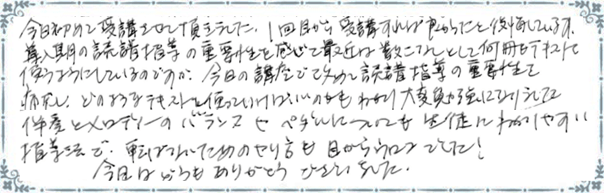 今日初めて受講させて頂きました。1回目から受講すれば良かったと後悔しています。
導入期の読譜指導の重要性を感じて最近は数こなしとして何冊もテキストを
使うようにしているのですが、今日の講座で改めて読譜指導の重要性を
感じ、どのようなテキストを使っていけばいいのかもわかり大変勉強になりました
伴奏とメロディーのバランスやペダルについても生徒にわかりやすい
指導法で、転ばないためのやり方も目からウロコでした！
今日はどうもありがとうございました。